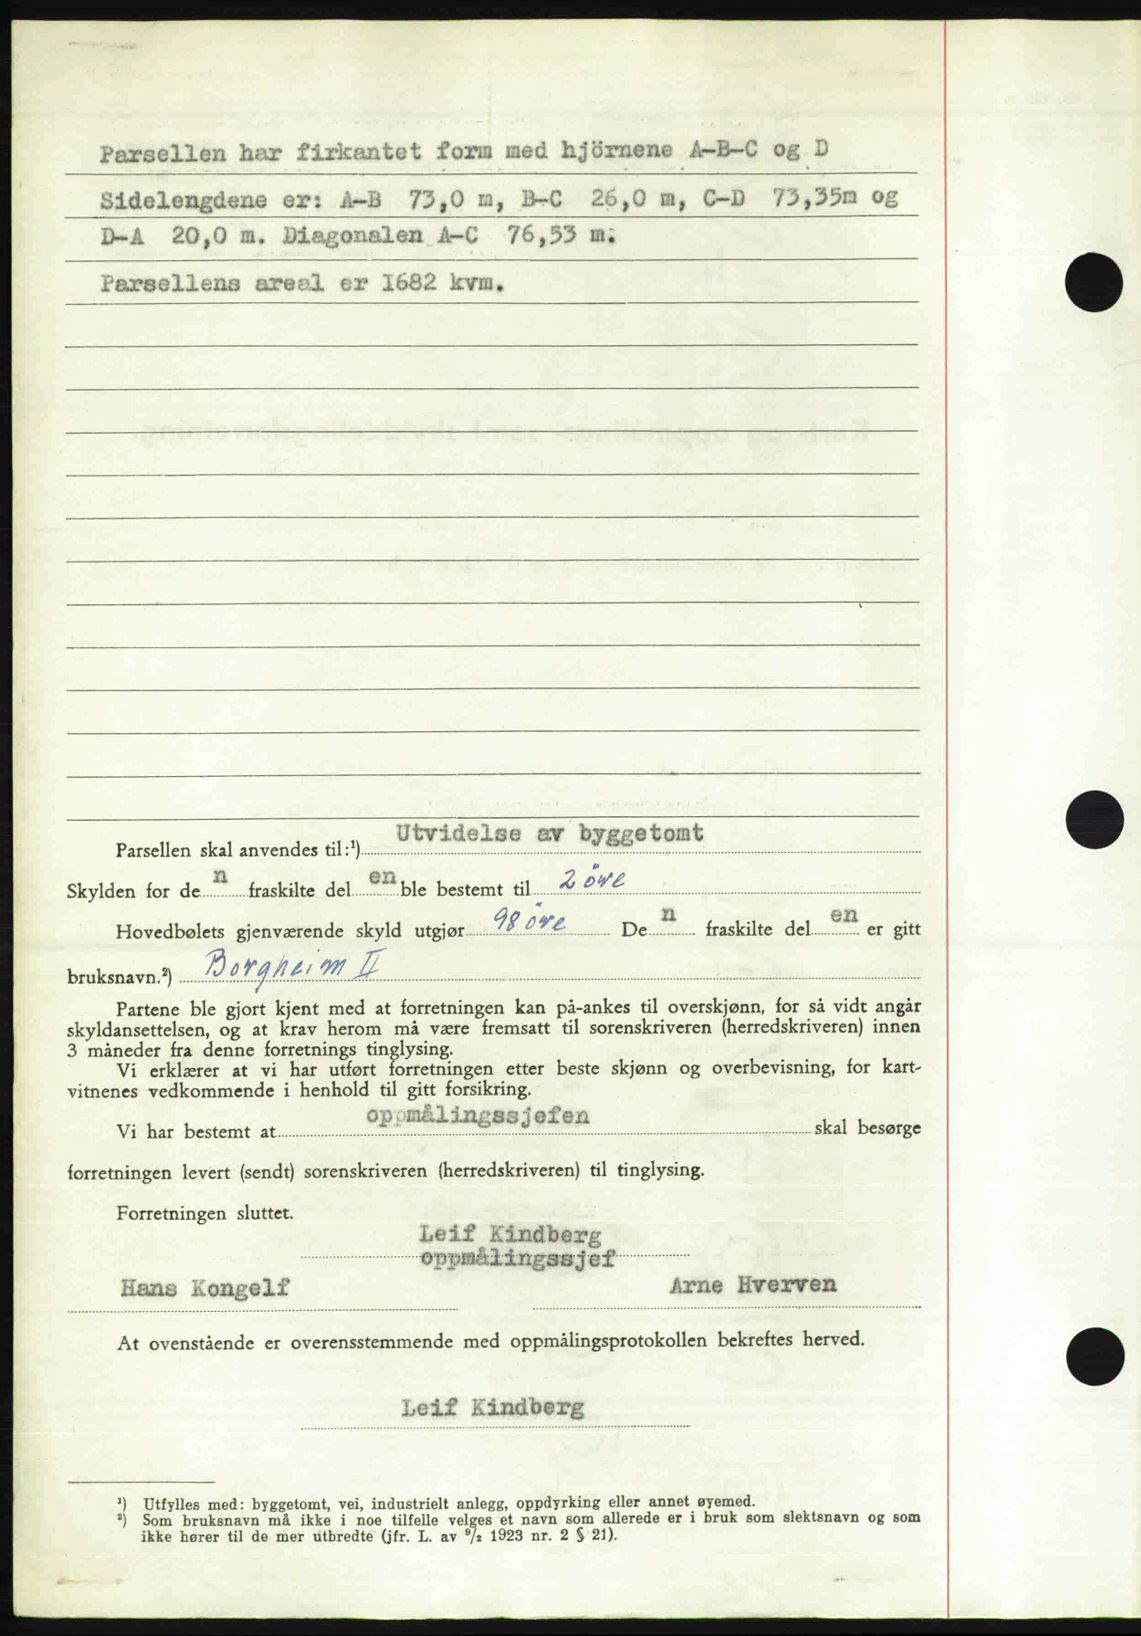 Parsellen har firkantet form med hjörnene A-B-C og D
Sidelengdene er: A-B 73,0 m, B-C 26,0 m, C-D 73,35m og
D-A 20,0 m. Diagonalen A-C 76,53 m.
Parsellens areal er I682 kvm.
Utvidelse av byggetomt
Parsellen skal anvendes til:¹)
Skylden for den fraskilte delen ble bestemt til 2 öre
Hovedbølets gjenværende skyld utgjør 98 öre Den fraskilte delen er gitt
bruksnavn.²) Borgheim II
Partene ble gjort kjent med at forretningen kan på-ankes til overskjønn, for så vidt angår
skyldansettelsen, og at krav herom må være fremsatt til sorenskriveren (herredskriveren) innen
3 måneder fra denne forretnings tinglysing.
Vi erklærer at vi har utført forretningen etter beste skjønn og overbevisning, for kart-
vitnenes vedkommende i henhold til gitt forsikring.
Vi har bestemt at oppmålingssjefen skal besørge
forretningen levert (sendt) sorenskriveren (herredskriveren) til tinglysing.
Forretningen sluttet.
Leif Kindberg
oppmålingssjef
Hans Kongelf Arne Hverven
At ovenstående er overensstemmende med oppmålingsprotokollen bekreftes herved.
Leif Kindberg
¹) Utfylles med: byggetomt, vei, industrielt anlegg, oppdyrking eller annet øyemed.
²) Som bruksnavn må ikke i noe tilfelle velges et navn som allerede er i bruk som slektsnavn og som
ikke hører til de mer utbredte (jfr. L. av ⁹/₂ 1923 nr. 2 § 21).